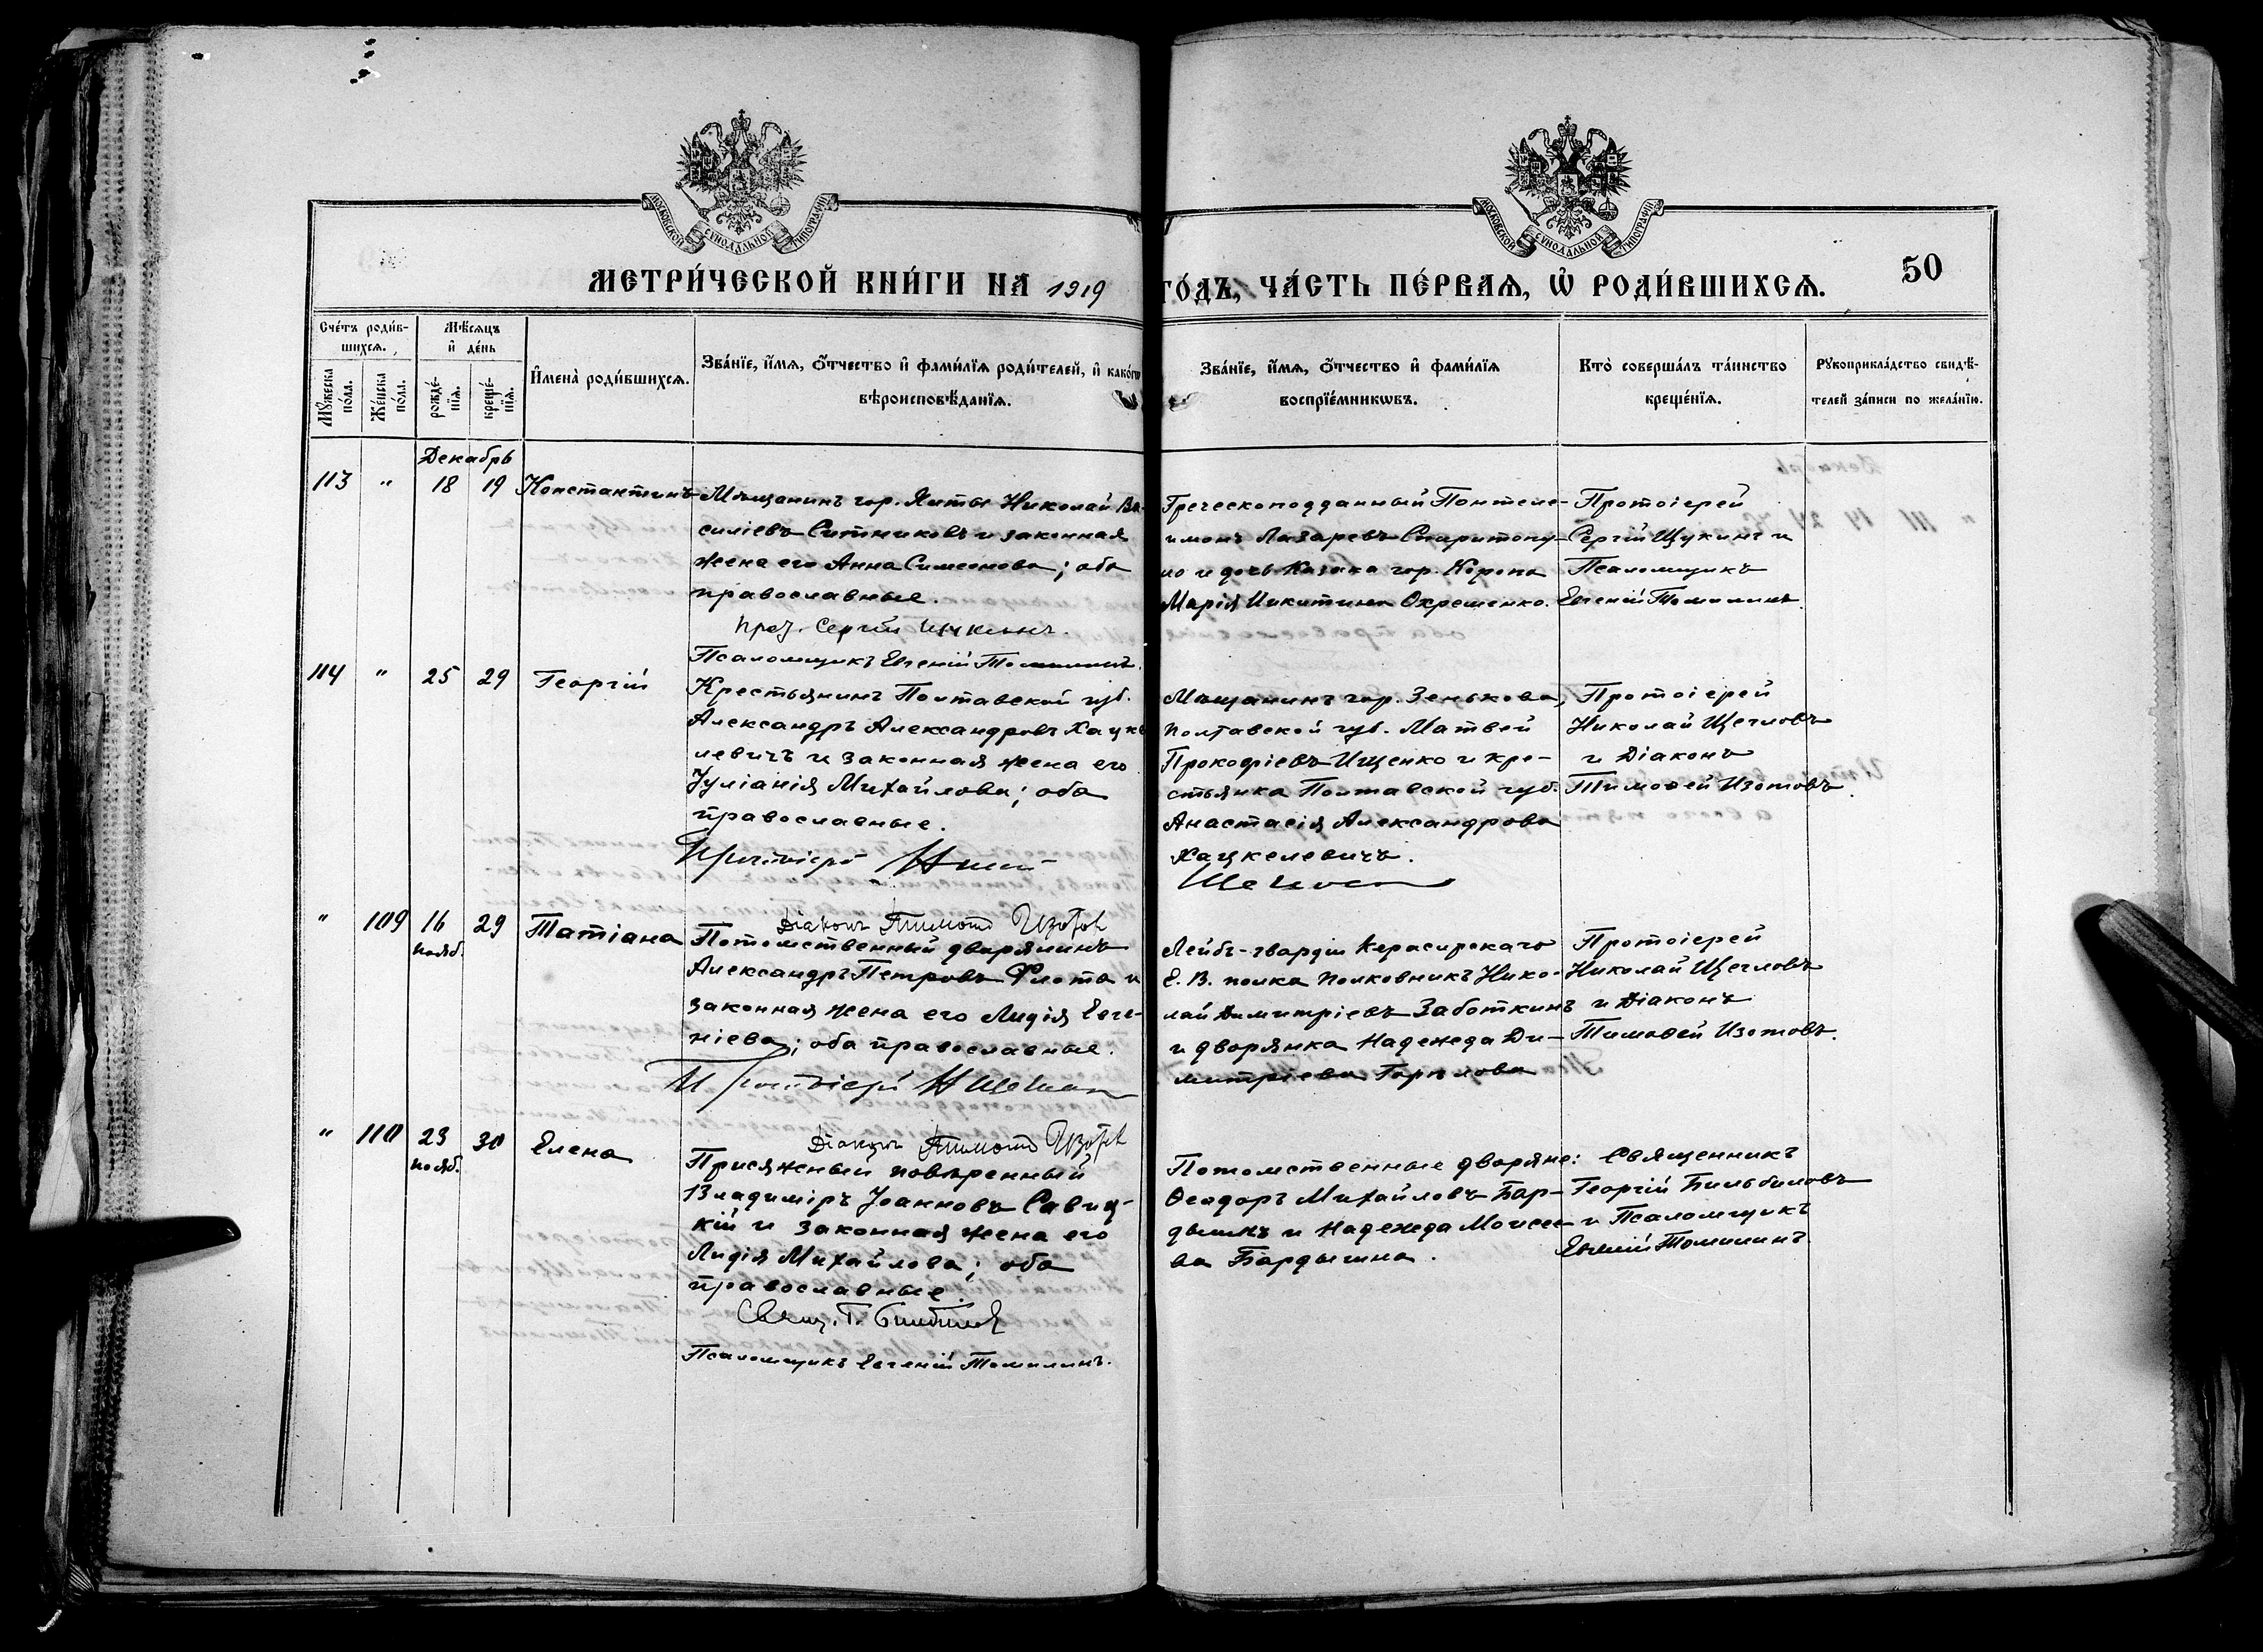 МОСКОВСКОЙ СѴНОДАЛЬНОЙ ТИПОГРАФІИ
МОСКОВСКОЙ СѴНОДАЛЬНОЙ ТИПОГРАФІИ
МЕТРИ́ЧЕСКОЙ КНИ́ГИ НА 1919
ГО́ДЪ, ЧА́СТЬ ПЕ́РВАѦ, Ѡ РОДИ́ВШИХСѦ.
50
Сче́тъ роди́в-
шихсѧ.
Мꙋ́жеска по́ла.
Же́нска по́ла.
Мѣ́сѧцъ
и҆ де́нь
рожде́-
нїѧ.
креще́-
нїѧ.
И҆мена̀ роди́вшихсѧ.
Зва́нїе, и҆́мѧ, ѻ҆́тчество и҆ фами́лїѧ роди́телей, и҆ како́гѡ
вѣроисповѣ́данїѧ.
Зва́нїе, и҆́мѧ, ѻ҆́тчество и҆ фами́лїѧ
воспрїе́мникѡвъ.
Кто̀ соверша́лъ та́инство
креще́нїѧ.
Рꙋкоприкла́дство свидѣ́-
телей за́писи по жела́нїю.
Декабрь
113 " 18 19 Константинъ
Мѣщанинъ гор. Ялты Николай Ва-
силіевъ Ситниковъ и законная
жена его Анна Симеонова; оба
православные.
Прот. Сергій Щукинъ.
Псаломщикъ Евгеній Томилинъ.
Греческоподданный Понтеле-
имонъ Лазаревъ Спиритопу-
ло и дочь Казака гор. Коропа
Марія Никитина Охрешенко.
Протоіерей
Сергій Щукинъ и
Псаломщикъ
Евгеній Томилинъ.
114 " 25 29 Георгій
Крестьянинъ Полтавской губ.
Александръ Александровъ Хацке
левичъ и законная жена его
Іуліанія Михайлова; оба
православные.
Протоіерей Н
Діаконъ Тимоѳей Изотов
Мѣщанинъ гор. Зенькова,
Полтавской губ. Матвей
Прокофіевъ Ищенко и кре-
стьянка Полтавской губ.
Анастасія Александрова
Хацкелевичъ.
Щеглов
Протоіерей
Николай Щегловъ
и Діаконъ
Тимоѳей Изотовъ.
" 109 16 29 Татіана
нояб.
Потомственный дворянинъ
Александръ Петровъ Флота и
законная жена его Лидія Евге-
ніева; оба православные.
Протоіерей Н Щеглов
Діаконъ Тимоѳей Изотов
Лейбъ-гвардіи Керасирскаго
Е. В. полка Полковникъ Нико-
лай Димитріевъ Заботкинъ
и дворянка Надежда Ди-
митріева Горѣлова
Протоіерей
Николай Щегловъ
и Діаконъ
Тимоѳей Изотовъ.
" 110 23 30 Елена
нояб.
Присяжный повѣренный
Владиміръ Іоанновъ Савиц-
кій и законная жена его
Лидія Михайлова; оба
православные.
Свящ. Г.
Псаломщикъ Евгеній Томилинъ.
Потомственные дворяне:
Ѳеодоръ Михайловъ Бар-
дыгинъ и Надежда Моисее-
ва Бардыгина.
Священникъ
Георгій Бильбиловъ
и Псаломщикъ
Евгеній Томилинъ